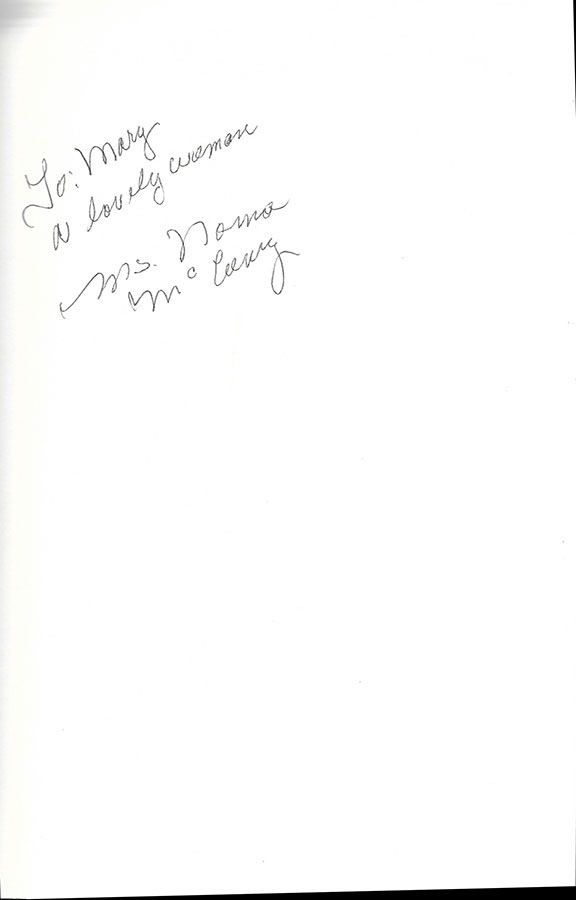 To: Mary
a lovely woman
Ms. Norma
McCorvey